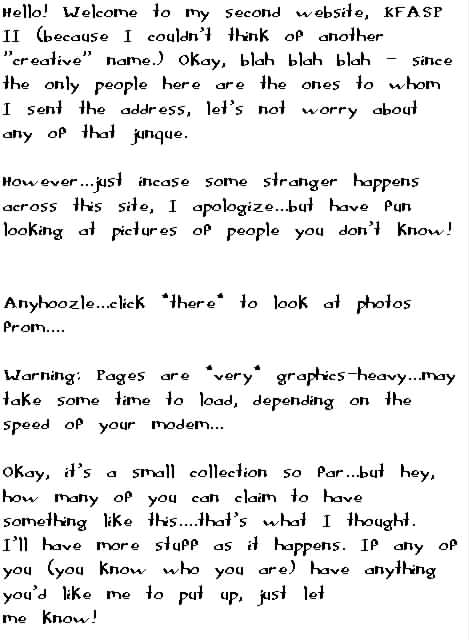 Hello! Welcome to my second website, KFASP
II (because I couldn't think of another
"creative" name.) Okay, blah blah blah - since
the only people here are the ones to whom
I sent the address, let's not worry about
any of that junque.
However...just incase some stranger happens
across this site, I apologize...but have fun
looking at pictures of people you don't know!
Anyhoozle...click *there* to look at photos
from....
Warning: Pages are *very* graphics-heavy...may
take some time to load, depending on the
speed of your modem...
Okay, it's a small collection so far...but hey,
how many of you can claim to have
something like this....that's what I thought.
I'll have more stuff as it happens. If any of
you (you know who you are) have anything
you'd like me to put up, just let
me know!